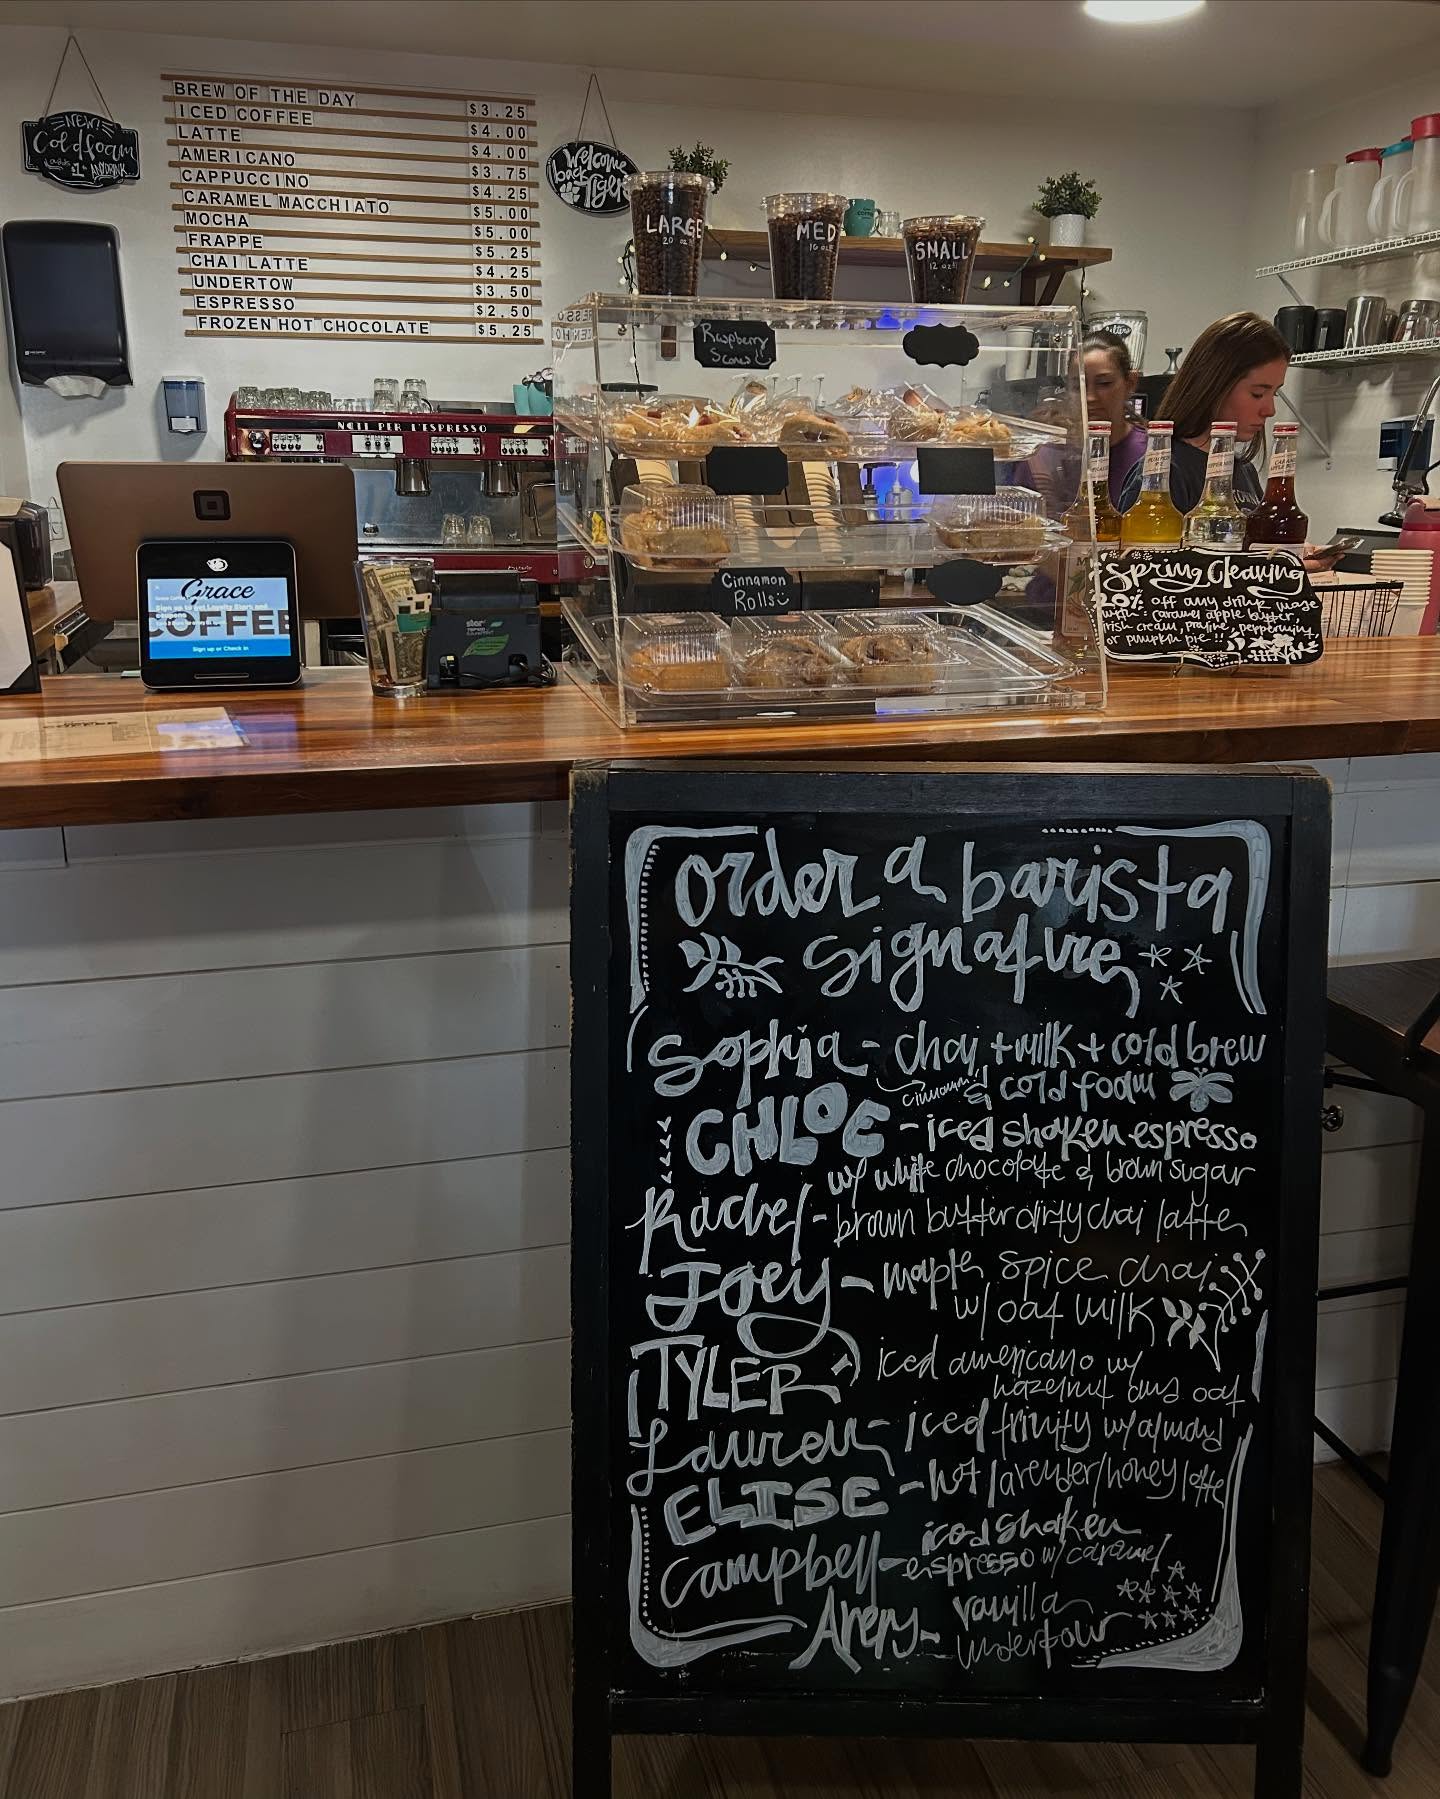 NEW!
Coldfoam
adds $1 to ANY DRINK
BREW OF THE DAY $3.25
ICED COFFEE $4.00
LATTE $4.00
AMERICANO $3.75
CAPPUCCINO $4.25
CARAMEL MACCHIATO $5.00
MOCHA $5.00
FRAPPE $5.25
CHAI LATTE $4.25
UNDERTOW $3.50
ESPRESSO $2.50
FROZEN HOT CHOCOLATE $5.25
Welcome
back
Tigers
LARGE
20 oz
MED
16 oz
SMALL
12 oz
Raspberry
Scones
NOTI PER L'ESPRESSO
Cinnamon
Rolls
Grace
COFFEE
Sign up to get Loyalty Stars and
coupons
Sign up or Check in
star
Spring Cleaning
20% off any drink made
with: caramel apple butter,
irish cream, praline, peppermint,
or pumpkin pie!!
order a barista
signature
Sophia - chai + milk + cold brew
cinnamon & cold foam
CHLOE - iced shaken espresso
w/ white chocolate & brown sugar
Rachel - brown butter dirty chai latte
Joey - maple spice chai
w/ oat milk
TYLER iced americano w/
hazelnut and oat
Lauren - iced trinity w/ almond
ELISE - hot lavender/honey latte
iced shaken
Campbell - espresso w/ caramel
Avery - vanilla
undertow